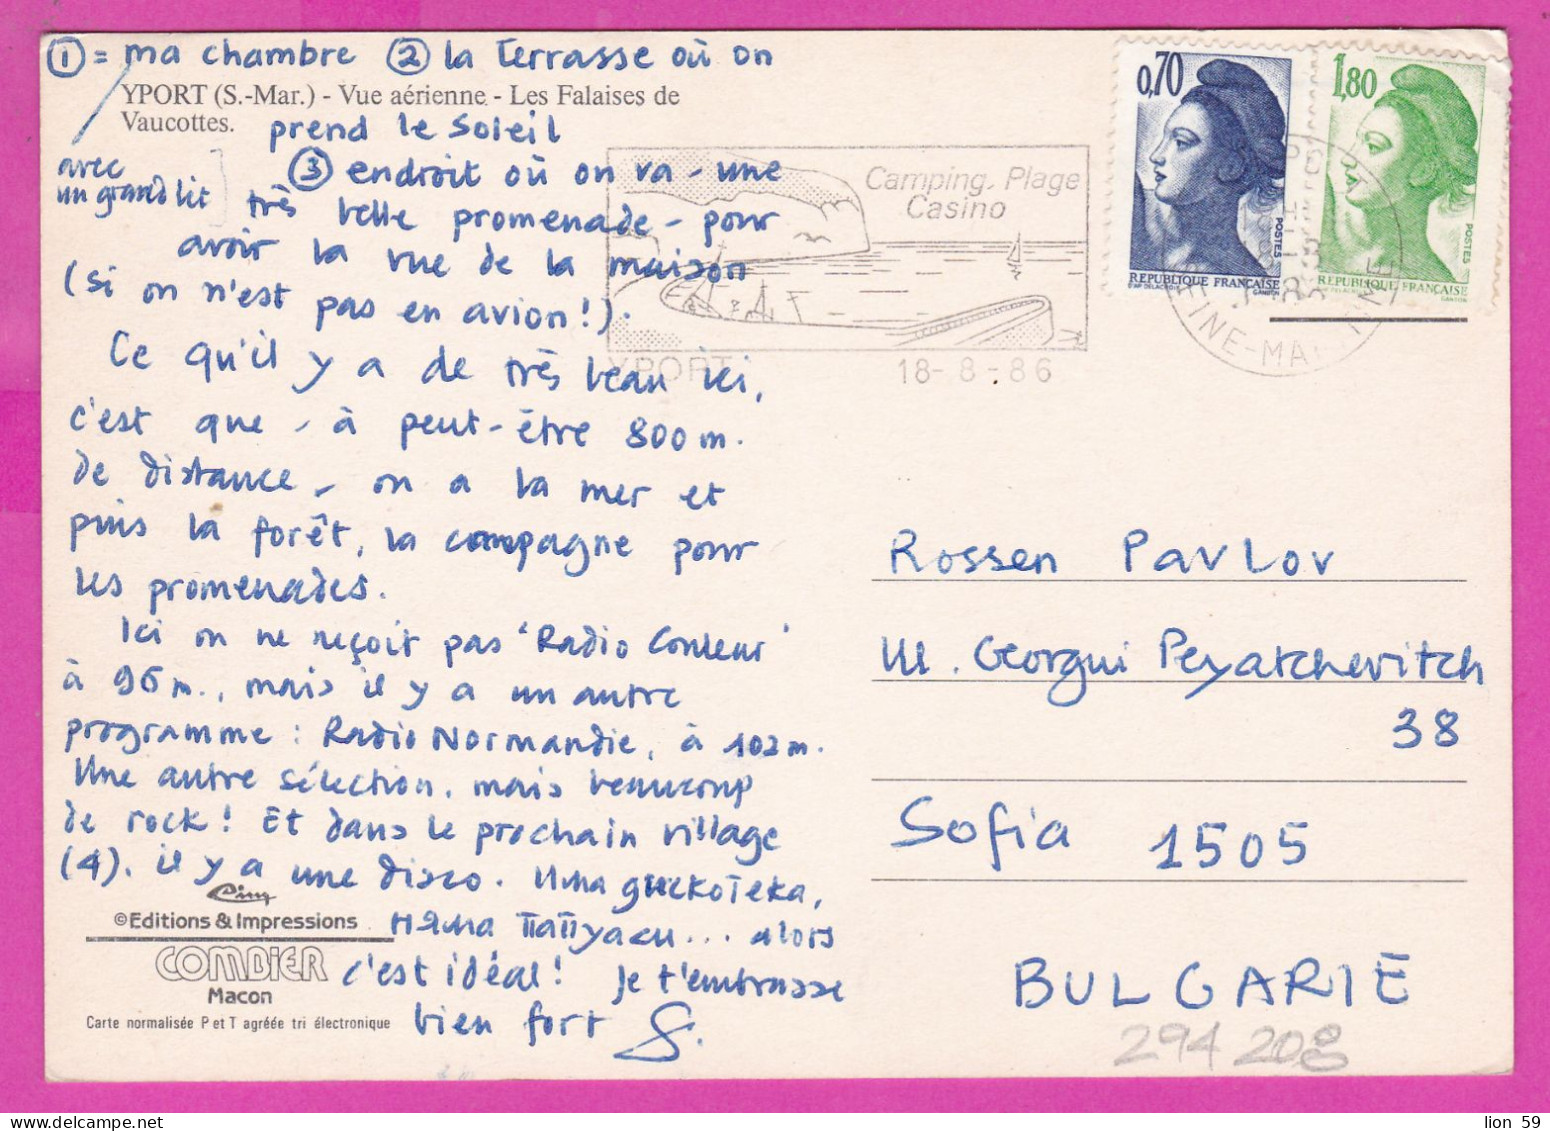 ① = ma chambre ② la terrasse où on
YPORT (S.-Mar.) - Vue aérienne - Les Falaises de
Vaucottes.
prend le soleil
avec
un grand lit
③ endroit où on va - une
très belle promenade - pour
avoir la vue de la maison
(si on n'est pas en avion!).
Ce qu'il y a de très beau ici,
c'est que - à peut-être 800 m.
de distance - on a la mer et
puis la forêt, la campagne pour
les promenades.
Ici on ne reçoit pas 'Radio Couleur'
à 96 m., mais il y a un autre
programme : Radio Normandie, à 102 m.
Une autre sélection, mais beaucoup
de rock! Et dans le prochain village
(4), il y a une disco. Има дискотека,
няма папугаи... alors
c'est idéal! Je t'embrasse
bien fort S.
Cim
©Editions & Impressions
COMBIER
Macon
Carte normalisée P et T agréée tri électronique
Camping. Plage
Casino
YPORT
18-8-86
SEINE-MARITIME
0,70
POSTES
REPUBLIQUE FRANÇAISE
D'AP DELACROIX GANDON
1,80
POSTES
REPUBLIQUE FRANÇAISE
GANDON
Rossen Pavlov
ul. Georgui Peyatchevitch
38
Sofia 1505
BULGARIE
294 208
lion 59